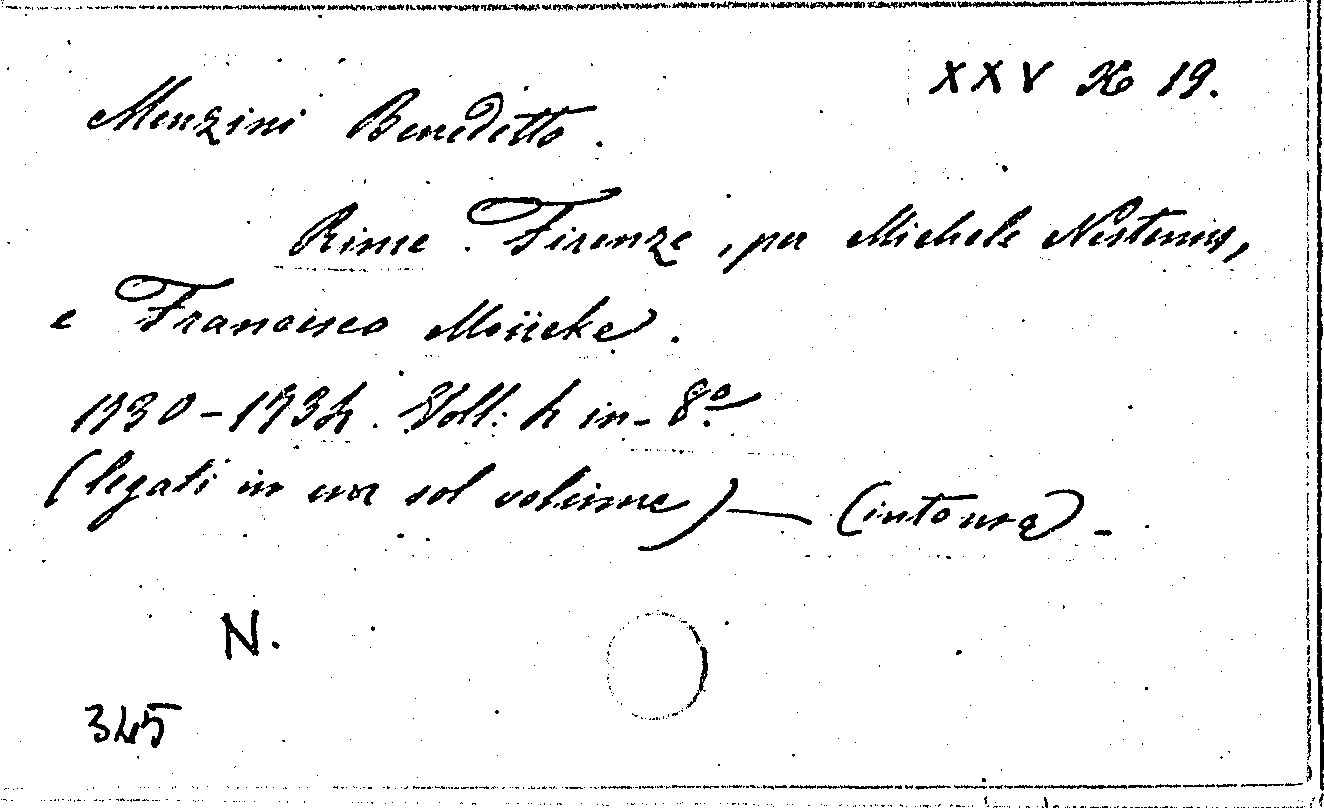 XXV H 19.
Menzini Benedetto.
Rime. Firenze, per Michele Nestenus,
e Francesco Moücke.
1730-1734. Voll: 4 in-8º.
(legati in un sol volume) — (intonso) -
N.
345